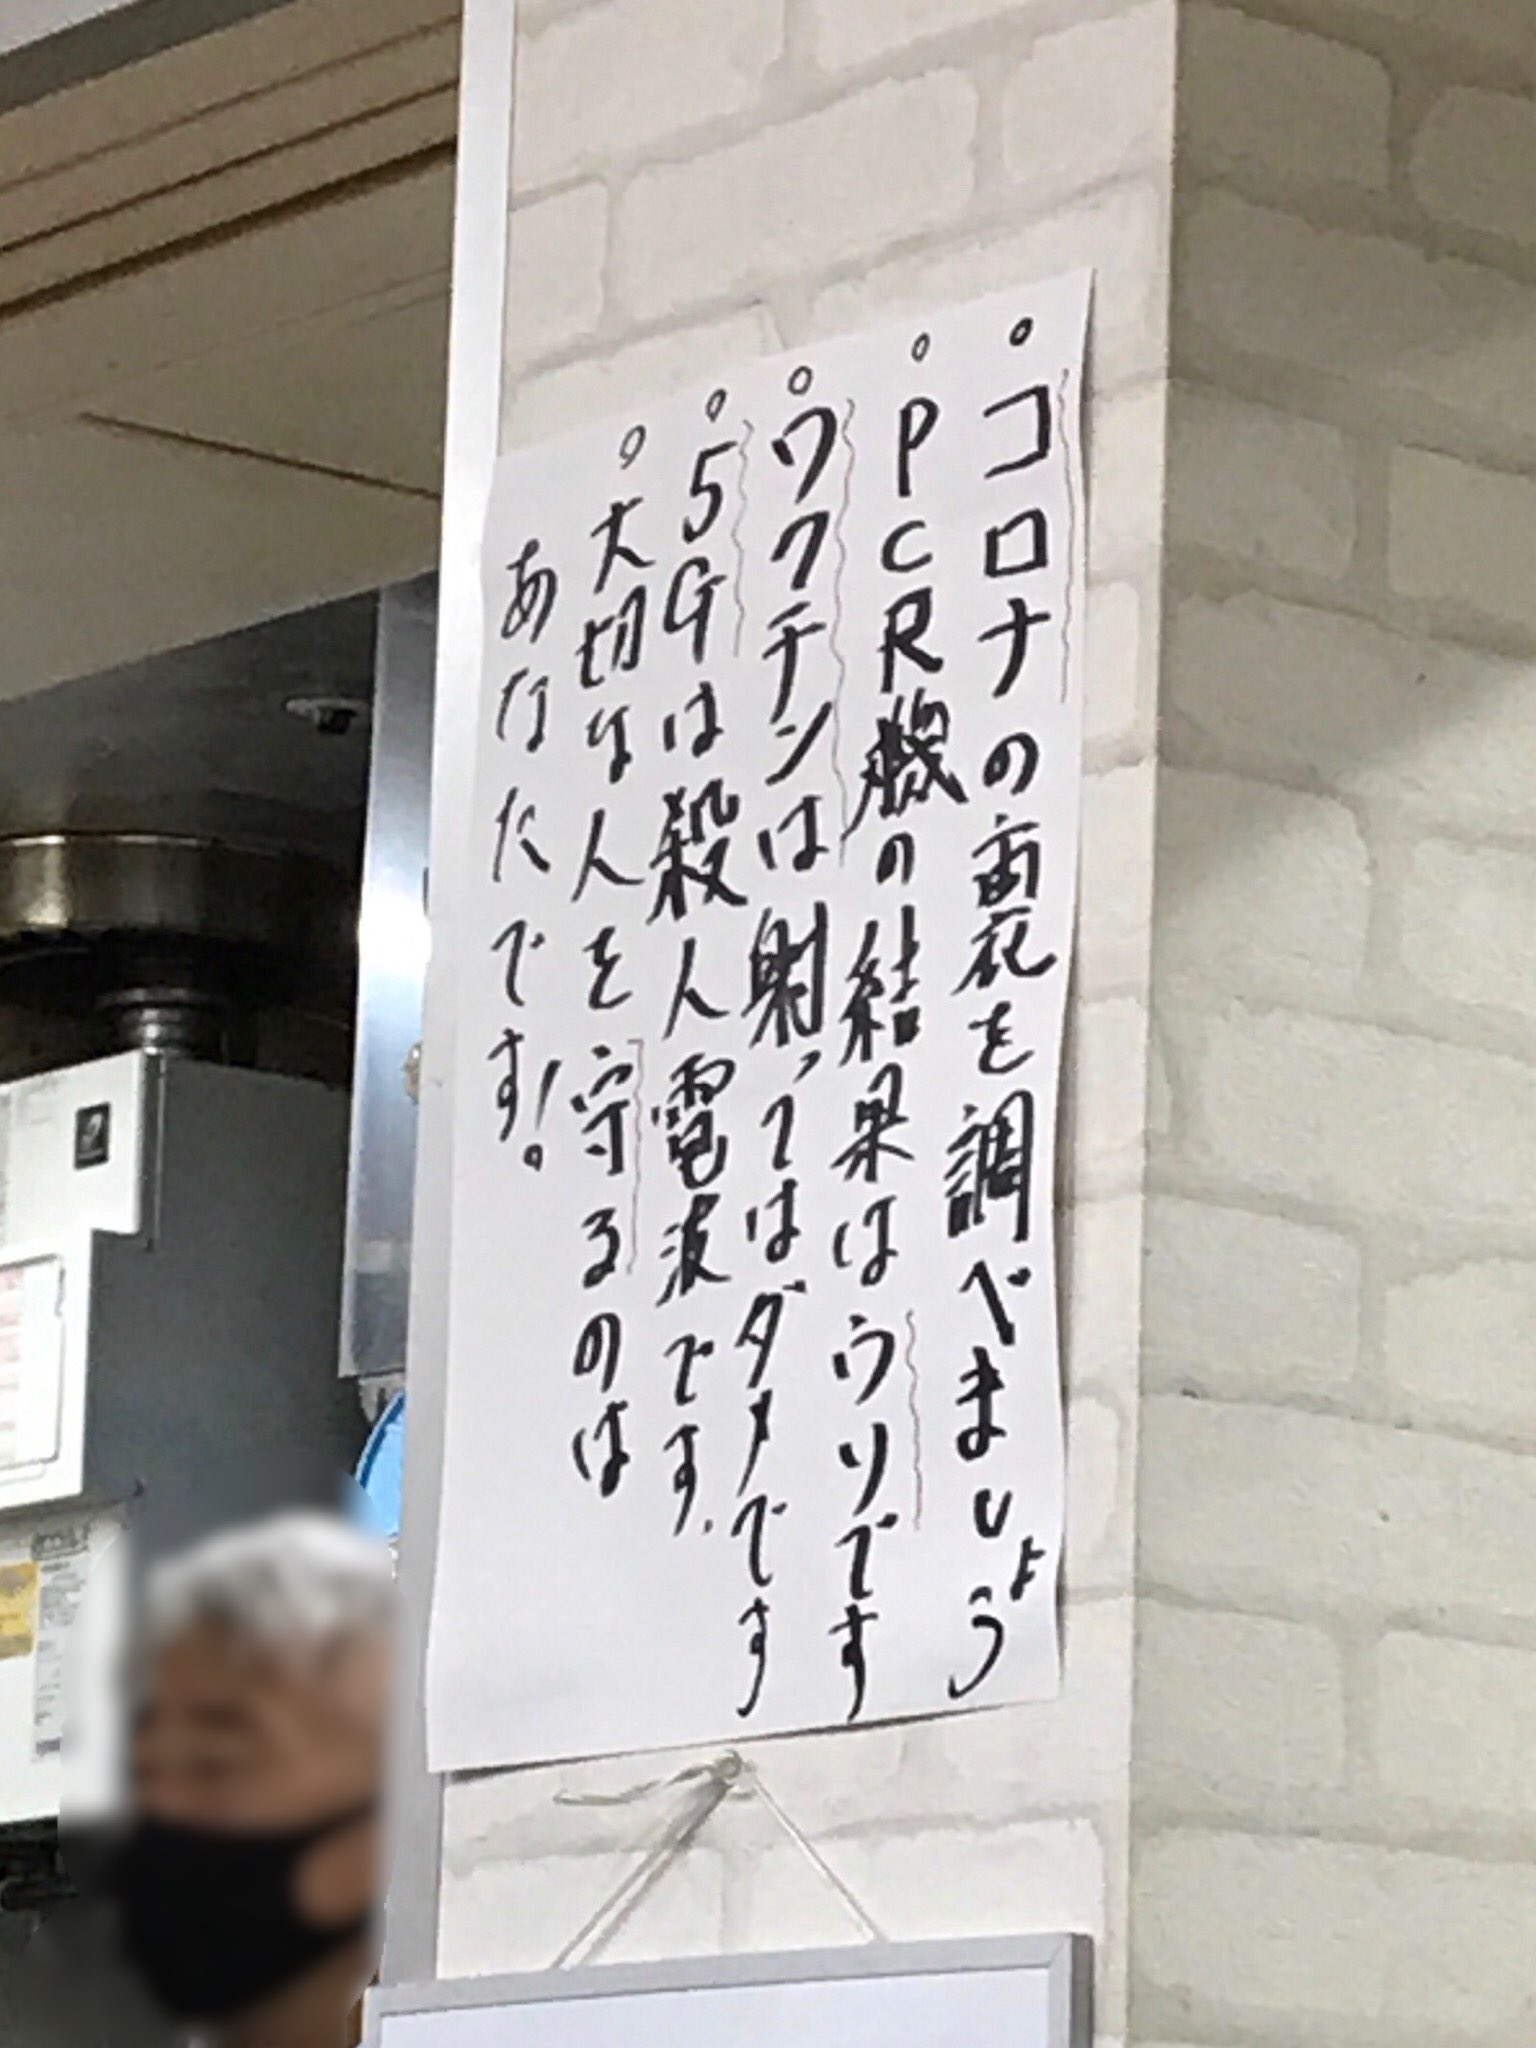 。コロナの畄花を調べましょう
。PCR機の結果はウソです
。ワクチンは射ってはダメです
。5Gは殺人電波です、
。大切な人を守るのは
あなたです!。